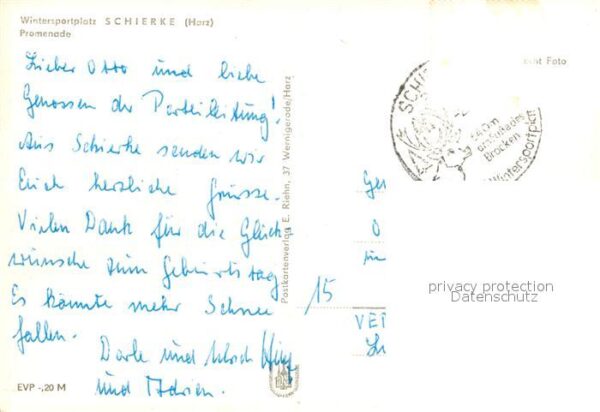 Wintersportplatz SCHIERKE (Harz)
Promenade
Lieber Otto und liebe
Genossen der Parteileitung!
Aus Schierke senden wir
Euch herzliche Grüsse.
Vielen Dank für die Glück-
wünsche zum Geburtstag
Es könnte mehr Schnee
fallen.
und Adrien.
EVP -,20 M
Postkartenverlag E. Riehn, 37 Wernigerode/Harz
cht Foto
SCHI
640 m
Brocken
Wintersportplatz
Ger
O
15
VEI
privacy protection
Datenschutz